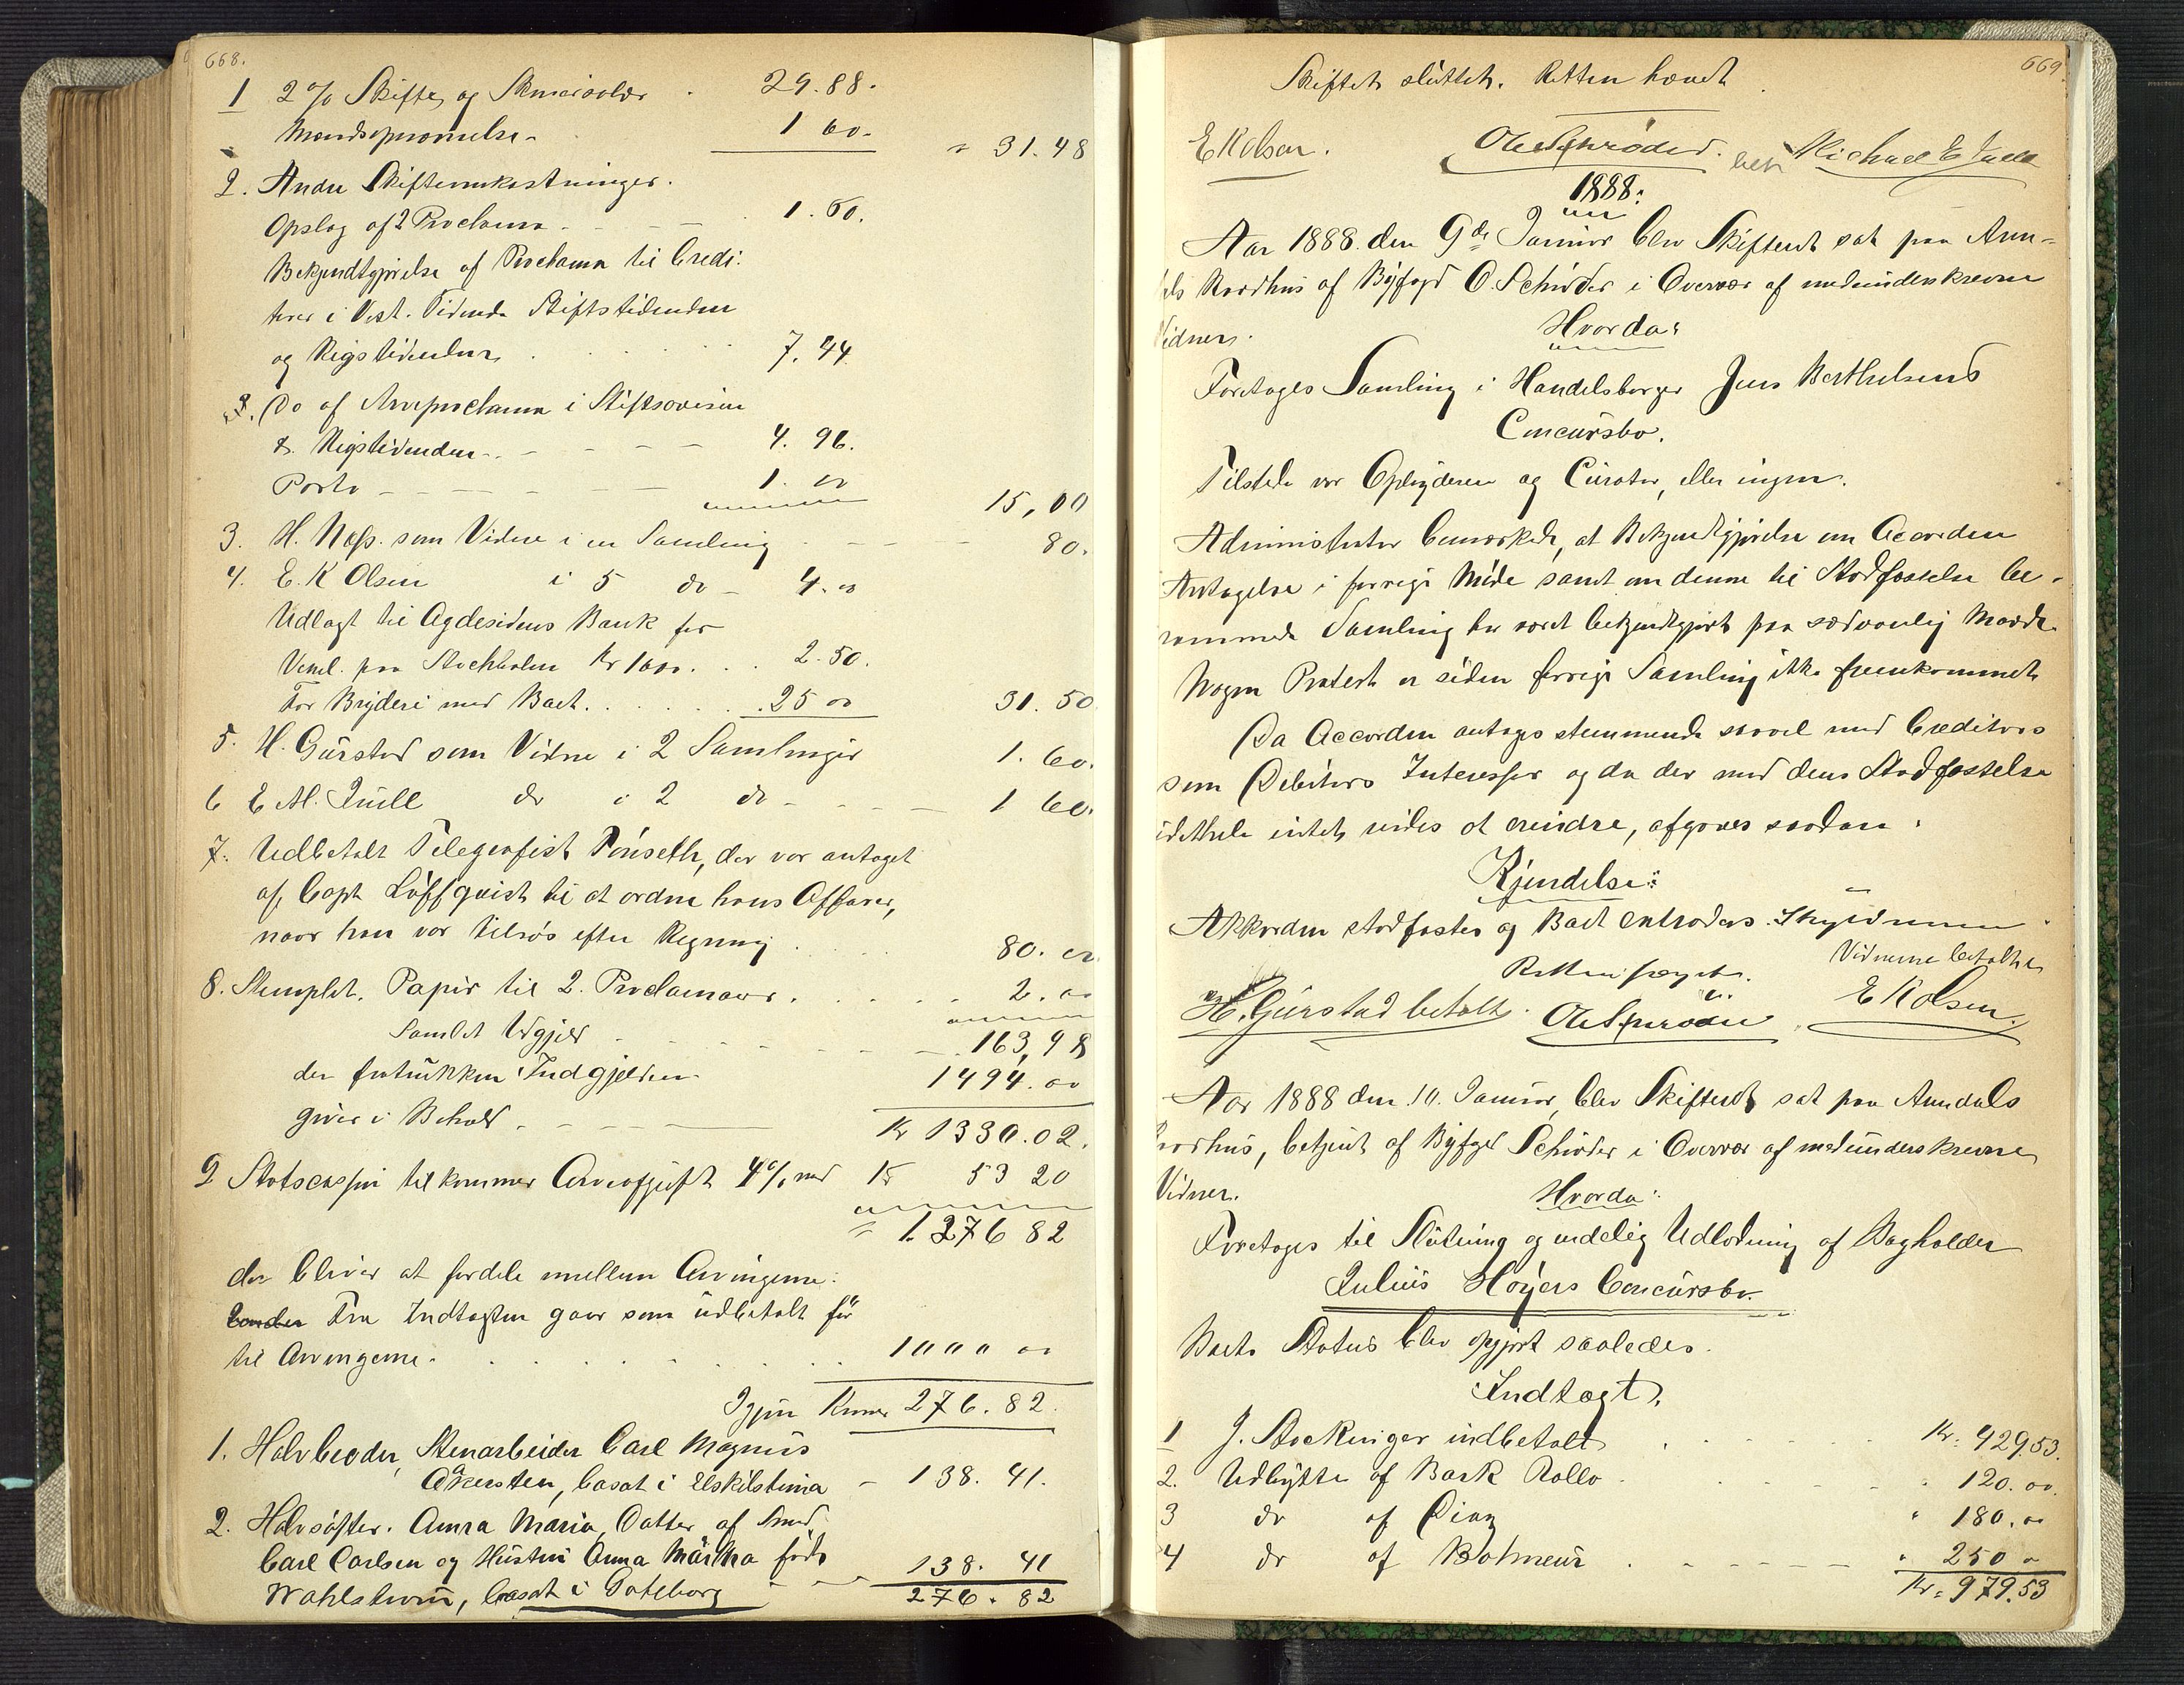 668.
1 2 % Skifte og Skriversalær . 29.88.
Mandsopnævnelse - 1 60. " 31.48
2. Andre Skifteomkostninger.
Opslag af 2 Proclama - - - 1.60.
Bekjendtgjørelse af Proclama til Credi-
torer i Vest. Tidende Stiftstidenden
og Rigstidenden . . . . 7.44
Do af Arveproclama i Stiftsavisen
& Rigstidenden - - - - 4. 96.
Porto - - - - - 1. 00
15,00
3. H. Næss. som Vidne i en Samling - - - 80.
4. E. K Olsen i 5 do - 4.00
Udlagt til Agdesidens Bank for
Vexel. paa Stockholm Kr 1000. . . 2.50.
For Bryderi med Boet. . . . . . 25 00 31.50
5. H. Gurstad som Vidne i 2 Samlinger 1.60.
6 E. M. Juell do i 2 do - - - 1 60.
7. Udbetalt Telegrafist Tønseth, der var antaget
af Capt Löffquist til at ordne hans Affærer,
naar han var tilsøs efter Regning . . . 80. 00
8. Stemplet. Papir til 2. Proclamaer . . . . . 2.00
Samlet Udgjift - - - - - 163,98
der fratrukken Indgjelden 1494.00
giver i Behold - - - - Kr 1330.02.
9 Statscassen tilkommer Arveafgift 4% med Kr 53 20
" 1.276 82
der bliver at fordele mellem Arvingerne:
Fra Indtægten gaar som udbetalt før
til Arvingerne. . . . . . . 1000 00
Igjen Kroner 276.82.
1. Halvbroder, Stenarbeider Carl Magnus
Åkersten, bosat i Eskilstuna - 138. 41.
2. Halvsøster. Anna Maria, Datter af Smed
Carl Carlsen og Hustru Anna Märtha født
Wahlström, bosat i Göteborg - - 138. 41
276. 82
669.
Skiftet sluttet. Retten hævet
E K Olsen. O Schrøder. Michael E Juell
1888:
Aar 1888. den 9de Januar blev Skifteret sat paa Aren-
dals Raadhus af Byfogd O. Schrøder i Overvær af medunderskrevne
Vidner. Hvorda:
Foretages Samling i Handelsborger Jens Berthelsens
Concursbo.
Tilstede var Opbyderen og Curator, ellers ingen.
Administrator bemærkede, at Bekjendtgjørelse om Accordens
Antagelse i forrige Møde samt om denne til Stadfæstelse be-
rammede Samling har været bekjendtgjort paa sædvanlig Maade.
Nogen Protest er siden forrige Samling ikke fremkommet
Da Accorden antages stemmende saavel med Creditors
som Debitors Interesser og da der mod dens Stadfæstelse
idethele intet vides at erindre, afgaves saadan
Kjendelse:
Akkorden stadfæstes og Boet extraderes Skyldneren
Retten hævet. Vidnerne betalte
H. Gurstad betalt. O Schrøder E K Olsen.
Aar 1888 den 10. Januar, blev Skifteret sat paa Arendals
Raadhus, betjent af Byfogd Schrøder i Overvær af medunderskrevne
Vidner. Hvorda:
Foretages til Slutning og endelig Udlodning af Bagholder
Julius Høyers Concursbo.
Boets Status blev opgjort saaledes.
Indtægt.
1 J. Stockinger indbetalt . . . . . . Kr. 429.53.
2. Udbytte af Bark Rollo . - - - " 120.00.
3 do af Diaz " 180.00
4 do af Balmeur . - - - - - " 250 00
Kr. 979.53